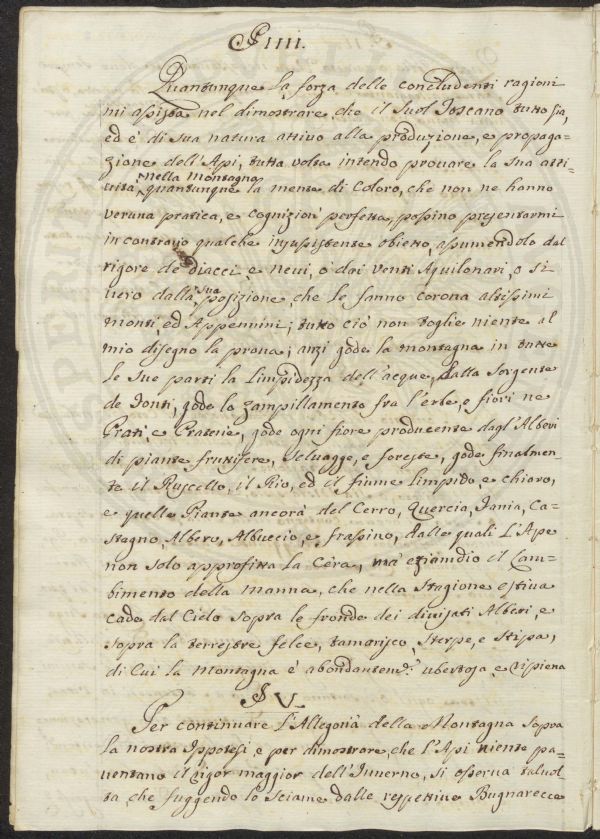 § IIII.
Quantunque la forza delle concludenti ragioni
mi assista nel dimostrare, che il Suol Toscano tutto sia,
ed è di sua natura attivo alla produzione, e propaga=
zione dell'Api, tutta volta intendo provare la sua atti
vità nella montagna, quantunque la mente di Coloro, che non ne hanno
veruna pratica, e cognizion' perfetta, possino presentarmi
in contrario qualche insussistente obietto, assumendolo dal
rigore de diacci, e nevi, o dai venti Aquilonari, o si
vero dalla sua posizione, che le fanno corona altissimi
monti, ed Appennini; tutto ciò non toglie niente al
mio disegno la prova; anzi gode la montagna in tutte
le sue parti la limpidezza dell'acque, dalla sorgente
de fonti, gode lo zampillamento fra l'erbe, e fiori ne
Prati, e Praterie, gode ogni fiore producente dagl'Alberi
di piante fruttifere, selvagge, e foreste, gode finalmen=
te il Ruscello, il Rio, ed il fiume limpido, e chiaro,
e quelle Piante ancora del Cerro, Quercia, Fania, Ca=
stagno, Albero, Albuccio, e frassino, dalle quali L'Ape
non solo approfitta la Cera, mà eziamdio il Cam=
bimento della Manna, che nella Stagione estiva
cade dal Cielo sopra le fronde dei divisati Alberi, e
sopra la terrestre felce, tamarisco, Sterpe, e Stipa,
di Cui la Montagna è abondantem.e ubertosa, e ripiena
§ V.
Per continuare L'Allegoria della Montagna sopra
la nostra Ippotesi, e per dimostrare, che l'Api niente pa=
ventano il rigor maggior dell'Inverno, si osserva talvol
ta, che fuggendo lo Sciame dalle respettive Bugnarecce